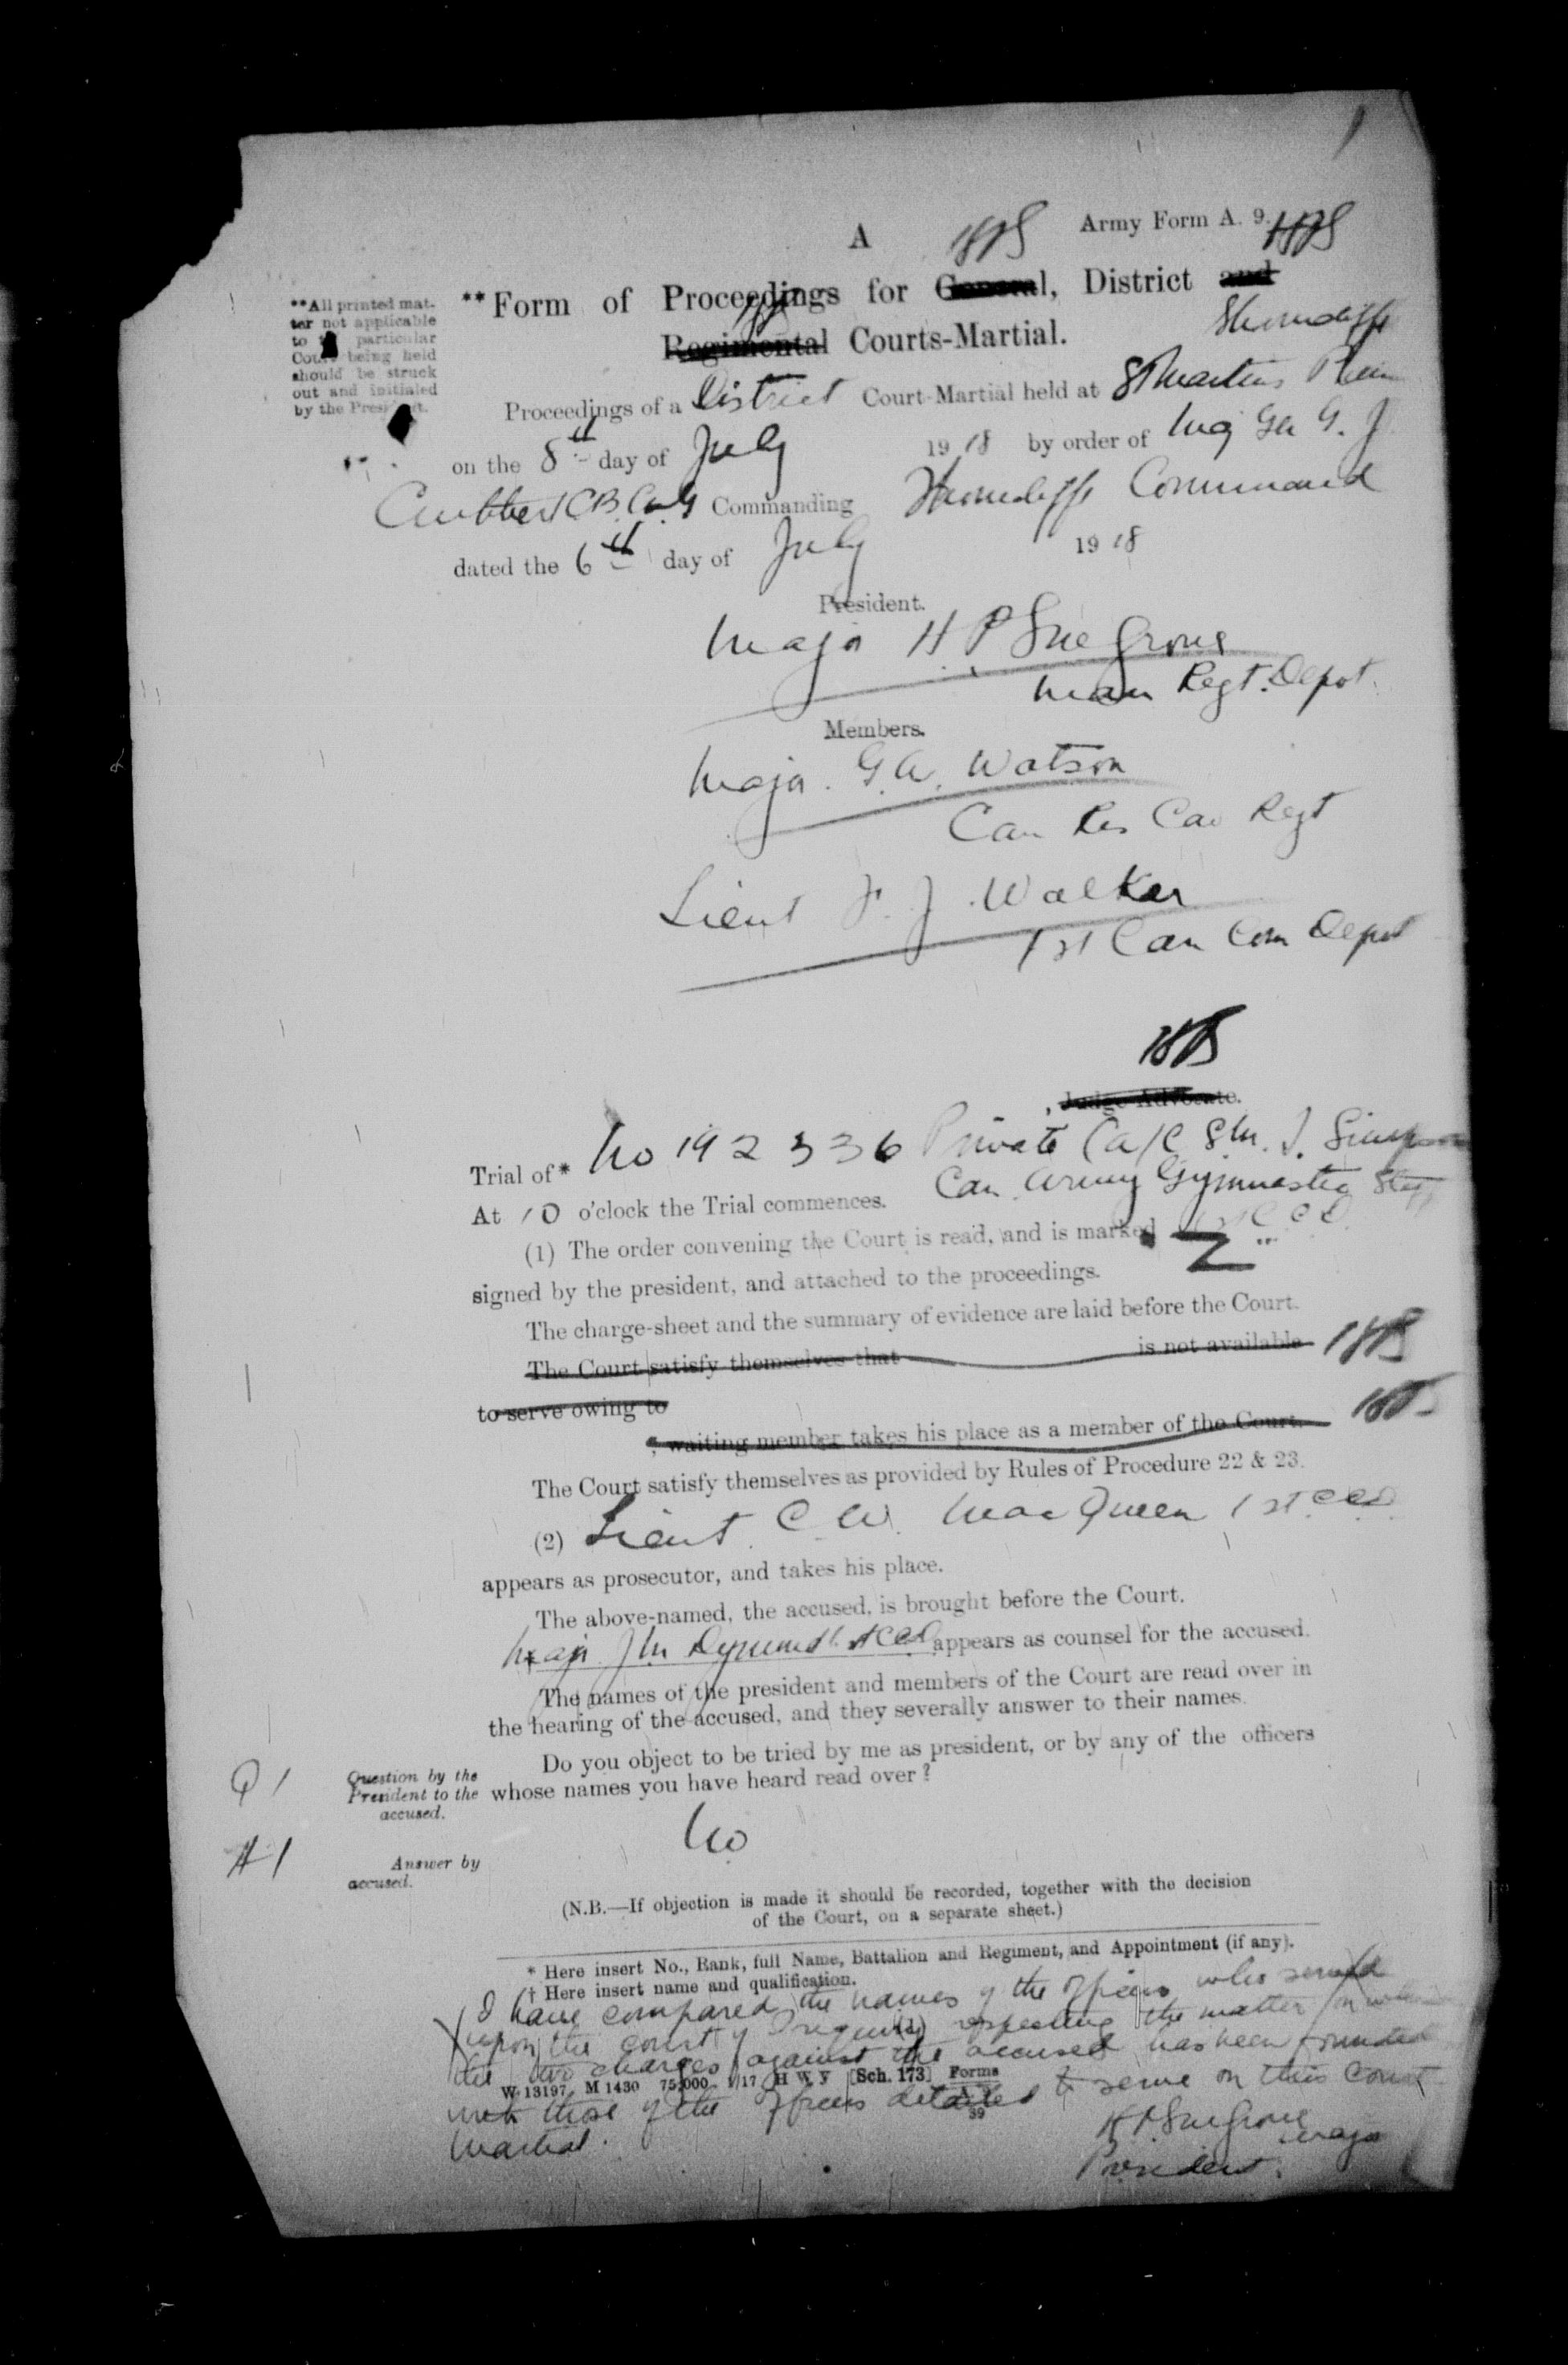 A
Army Form A. 9.
**Form of Proceedings for General, District and
Regimental Courts-Martial.
**All printed mat-
ter not applicable
to particular
Court being held
should be struck
out and initialed
by the President.
Shorncliffe
Proceedings of a District Court-Martial held at St Martins Plain
on the 8th day of July 1918 by order of Maj Gen G. J.
Cuthbert C.B. C.M.G Commanding Shorncliffe Command
dated the 6th day of July 1918
President.
Major H P
Man Regt. Depot.
Members.
Major. G.W. Watson
Can Res Cav Regt
Lieut F. J. Walker
1st Can Com Depot
Judge-Advocate.
Trial of* No 192336 Private (a/C S.M. J. Simpson
At 10 o'clock the Trial commences. Can Army Gymnastic Staff
(1) The order convening the Court is read, and is marked Z
signed by the president, and attached to the proceedings.
The charge-sheet and the summary of evidence are laid before the Court.
The Court satisfy themselves that is not available
to serve owing to
waiting member takes his place as a member of the Court.
The Court satisfy themselves as provided by Rules of Procedure 22 & 23.
(2) Lieut. C. W. MacQueen 1st C.C.D.
appears as prosecutor, and takes his place.
The above-named, the accused, is brought before the Court.
Major J M 1st CCD appears as counsel for the accused.
The names of the president and members of the Court are read over in
the hearing of the accused, and they severally answer to their names.
Q 1
Question by the
President to the
accused.
Do you object to be tried by me as president, or by any of the officers
whose names you have heard read over?
A 1
Answer by
accused.
No
(N.B.—If objection is made it should be recorded, together with the decision
of the Court, on a separate sheet.)
* Here insert No., Rank, full Name, Battalion and Regiment, and Appointment (if any).
† Here insert name and qualification.
I have compared the names of the officers who served
upon the court of Inquiry respecting the matter on which
the two charges against the accused has been founded
W 13197 M 1430 75,000 1/17 H W V [Sch. 173] Forms
39
with those of the officers detailed to serve on this Court
Martial.
Major
President.